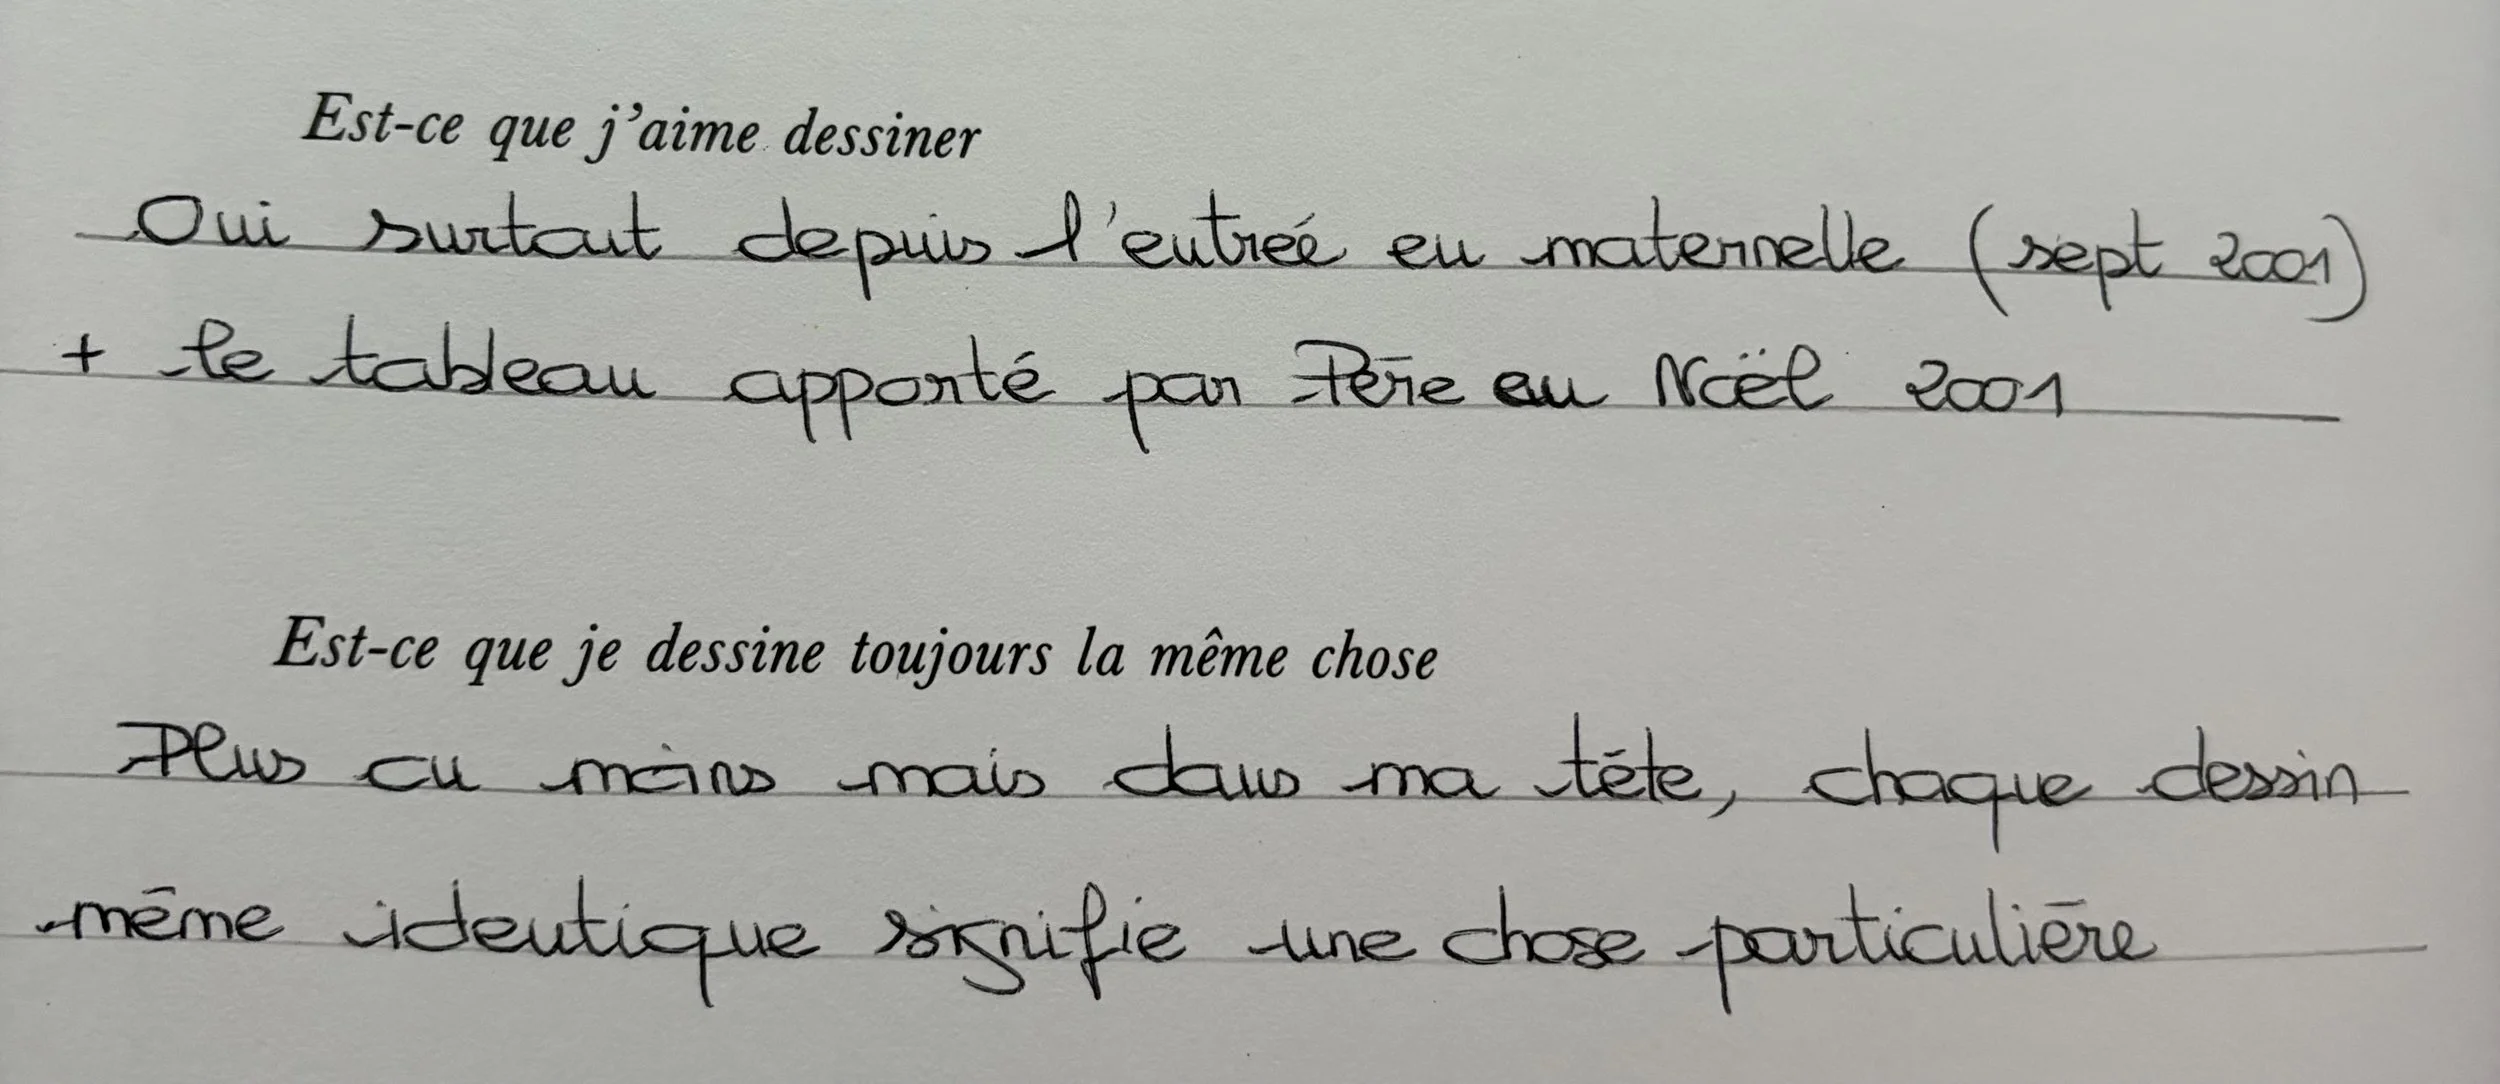 Est-ce que j'aime dessiner
Oui surtout depuis l'entrée en maternelle (sept 2001)
+ le tableau apporté par Père au Noël 2001
Est-ce que je dessine toujours la même chose
Plus ou moins mais dans ma tête, chaque dessin
même identique signifie une chose particulière